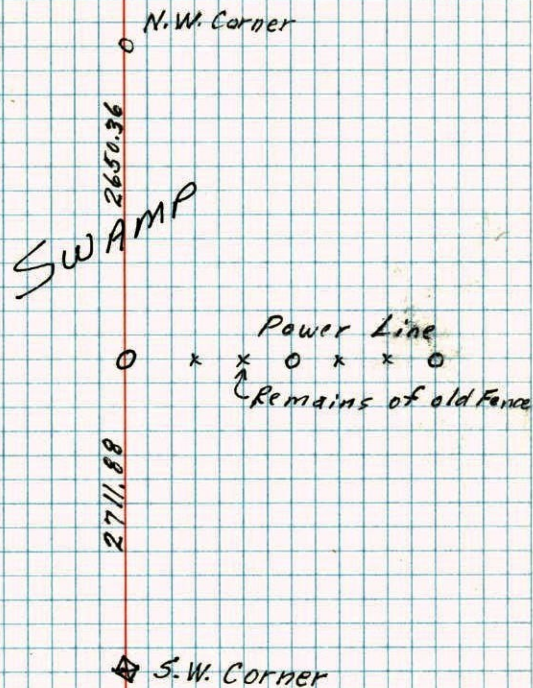 N.W. Corner
2650.36
SWAMP
Power Line
Remains of old Fence
2711.88
S.W. Corner